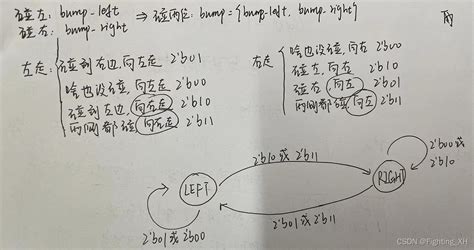 碰左: bump-left ⇒ 碰两边: bump={bump-left, bump-right}
碰右: bump-right
左走: 碰到右边,向左走 2'b01
啥也没碰,向左走 2'b00
碰到左边,向右走 2'b10
两侧都碰,向右走 2'b11
右走 啥也没碰,向右 2'b00
碰左,向右 2'b10
碰右,向左 2'b01
两侧都碰,向左 2'b11
2'b00或
2'b10
2'b10或2'b11
LEFT
RIGHT
2'b01或2'b11
2'b01或2'b00
CSDN @Fighting_XH